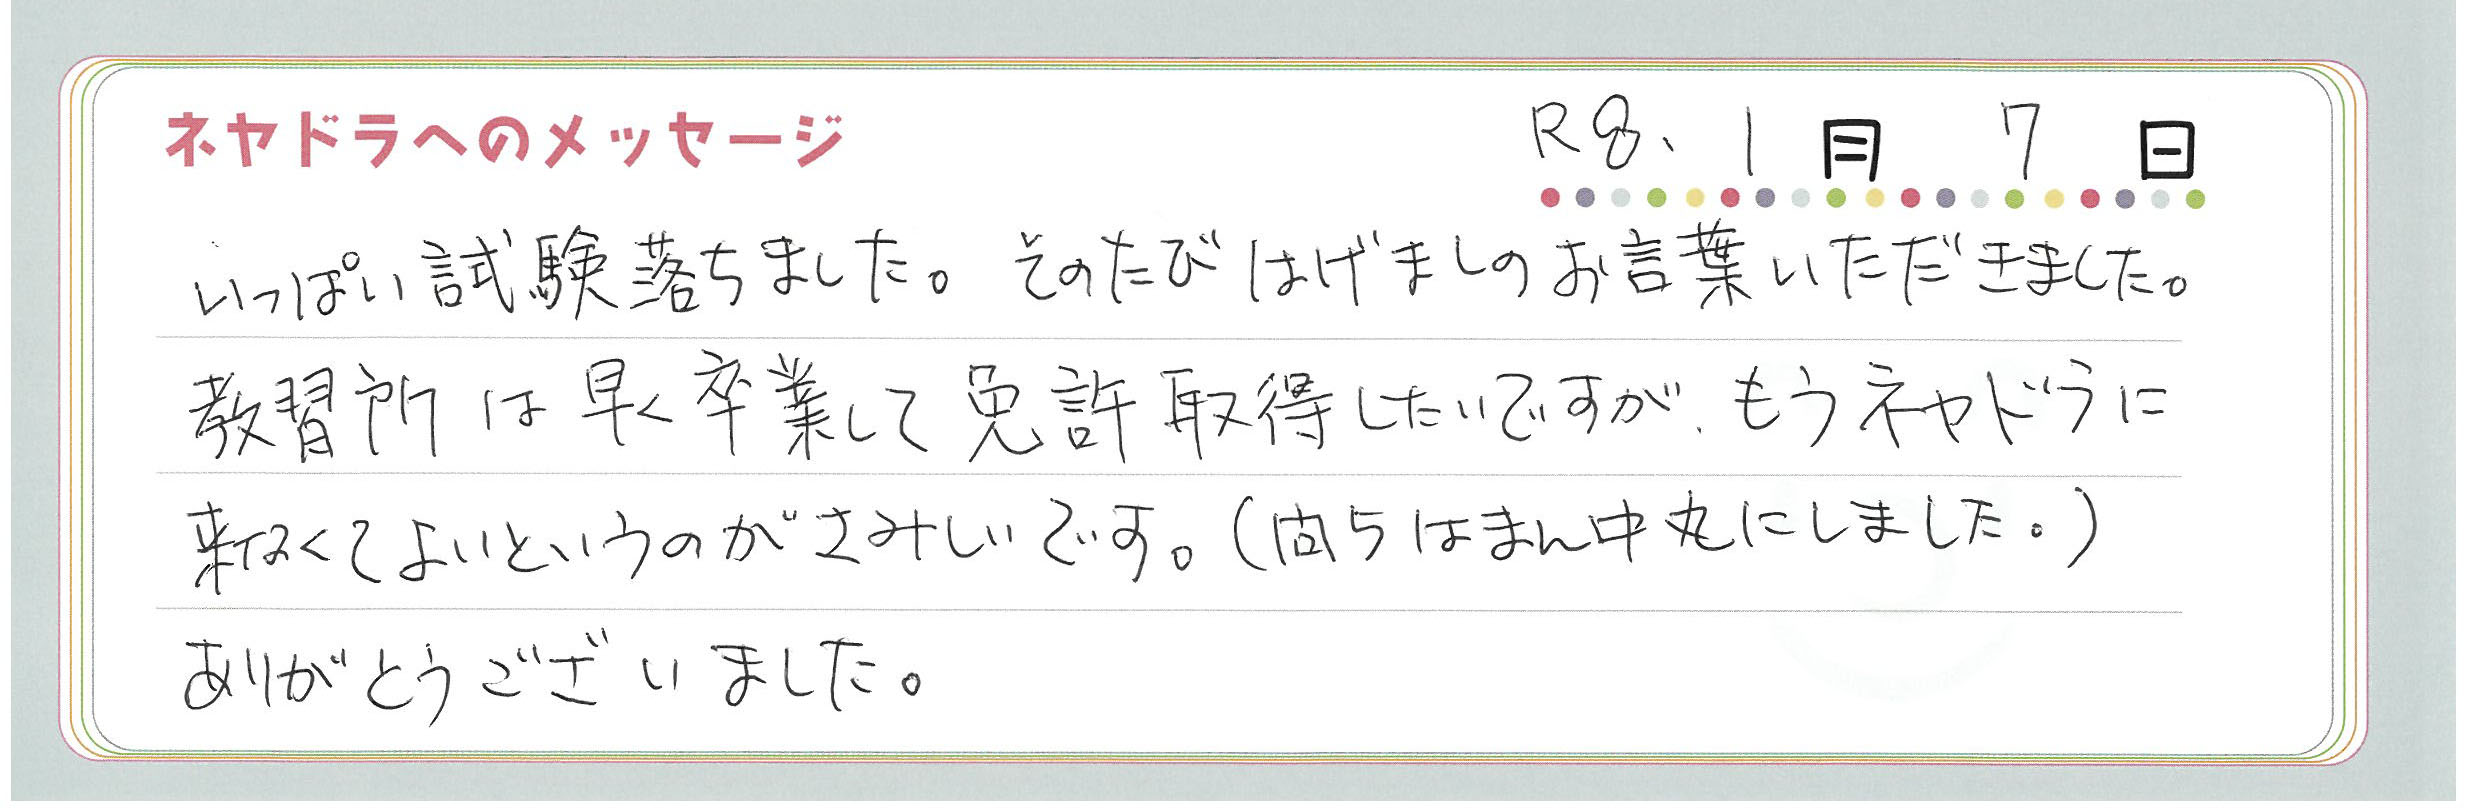 ネヤドラへのメッセージ
R8、1月 7日
いっぱい試験落ちました。そのたびはげましのお言葉いただきました。
教習所は早く卒業して免許取得したいですが、もうネヤドラに
来なくてよいというのがさみしいです。(問5はまん中丸にしました。)
ありがとうございました。